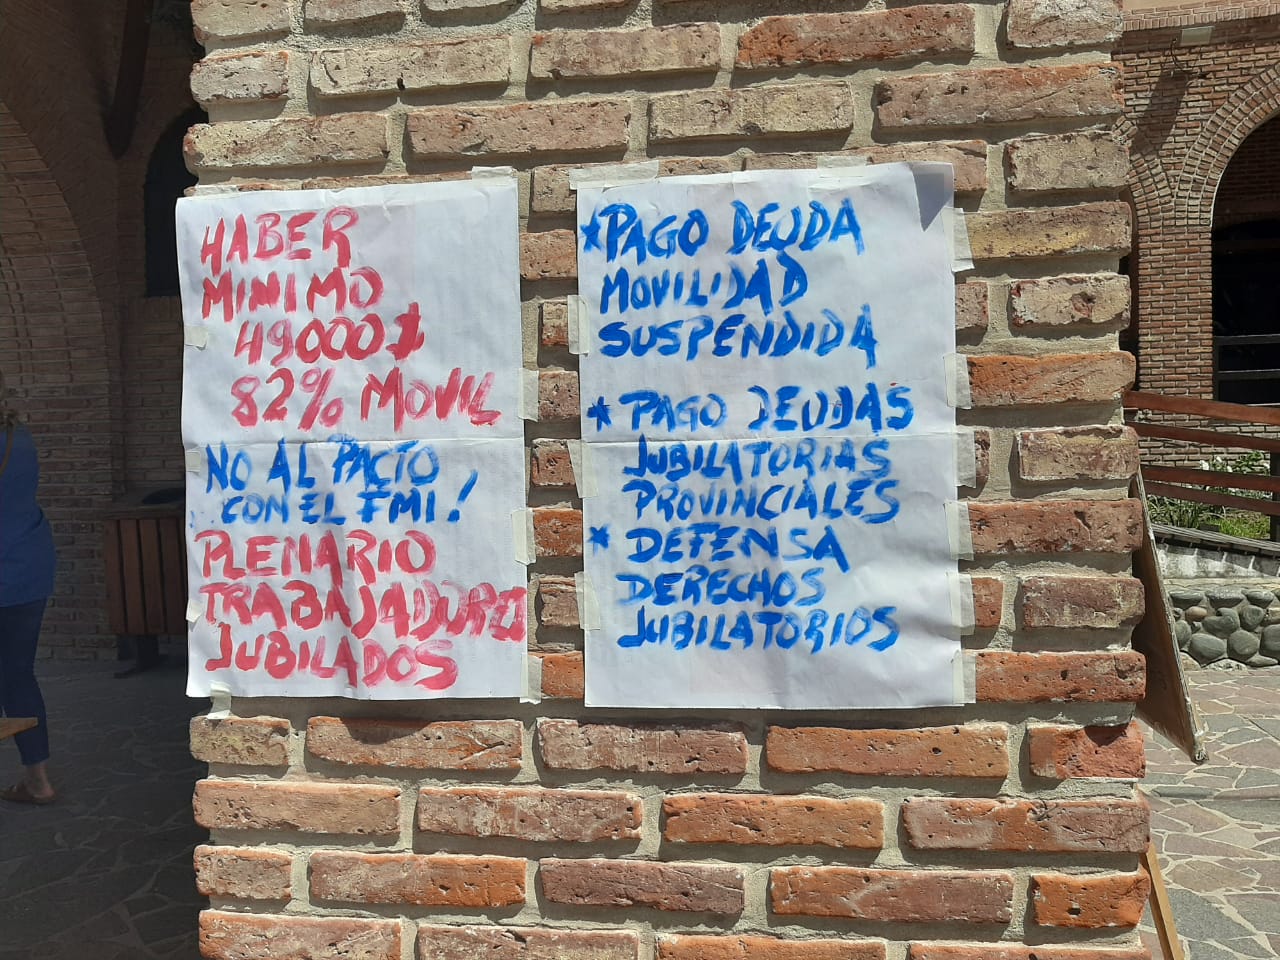 HABER
MINIMO
49000$
82% MOVIL
NO AL PACTO
CON EL FMI!
PLENARIO
TRABAJADORES
JUBILADOS
*PAGO DEUDA
MOVILIDAD
SUSPENDIDA
* PAGO DEUDAS
JUBILATORIAS
PROVINCIALES
* DEFENSA
DERECHOS
JUBILATORIOS